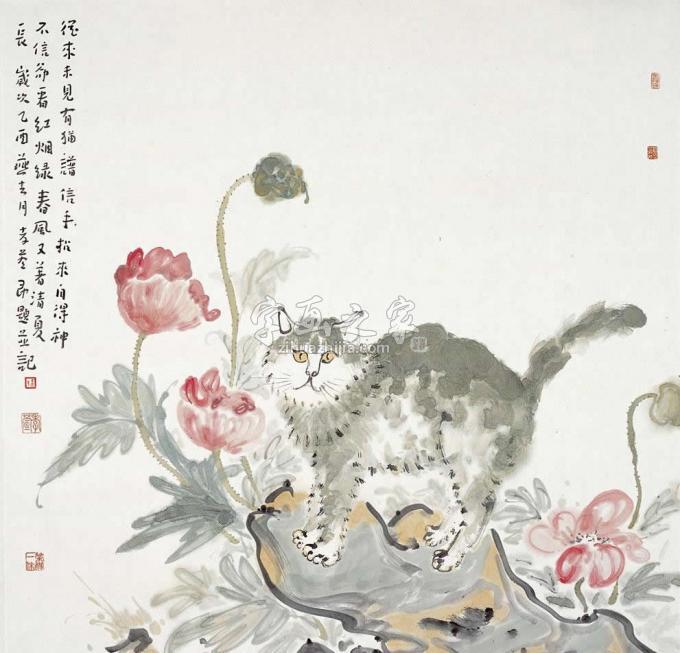 從來未見有猫譜信手拈來自得神
不信看紅烟綠春風又著清夏
長 歲次乙酉燕去月題並記
字画之家
zihuazhijia.com